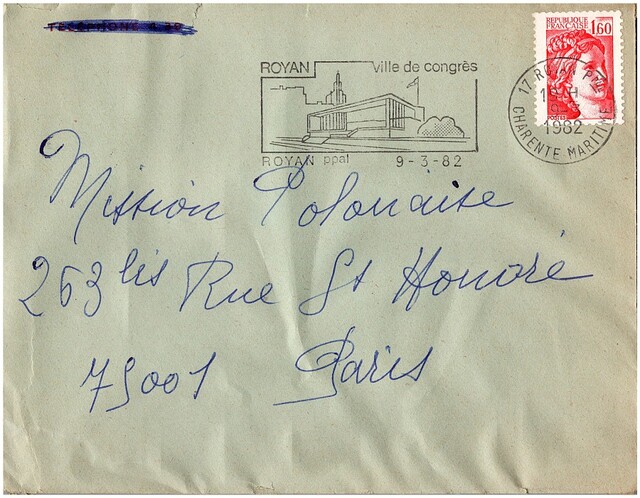 REPUBLIQUE
FRANÇAISE 1,60
POSTES
ROYAN ville de congrès
ROYAN ppal 9-3-82
17 ROYAN PPAL
1982
CHARENTE MARITIME
Mission Polonaise
263 bis Rue St Honoré
75001 Paris